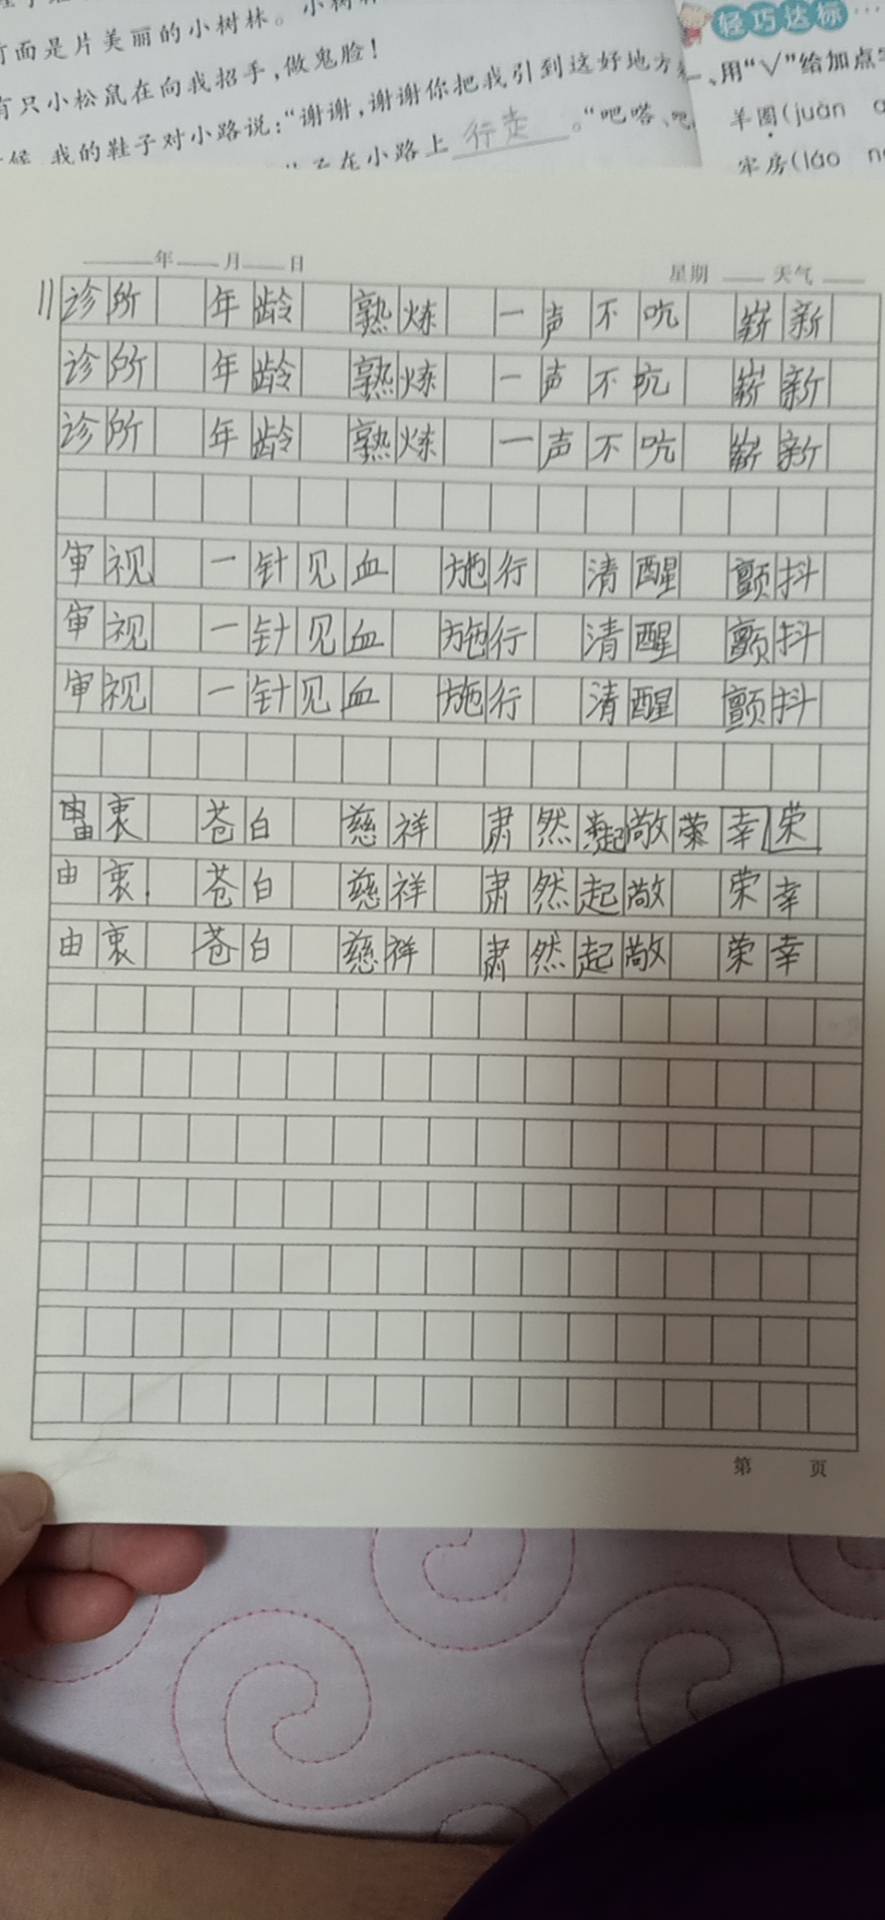 方面是片美丽的小树林。小树林
有只小松鼠在向我招手,做鬼脸!
候,我的鞋子对小路说:“谢谢,谢谢你把我引到这好地方来
在小路上行走。“吧嗒、吧
轻巧达标
一、用“√”给加点字
羊圈(juàn
牢房(láo
年 月 日 星期 天气
11 诊所 年龄 熟炼 一声不吭 崭新
诊所 年龄 熟炼 一声不吭 崭新
诊所 年龄 熟炼 一声不吭 崭新
审视 一针见血 施行 清醒 颤抖
审视 一针见血 施行 清醒 颤抖
审视 一针见血 施行 清醒 颤抖
由衷 苍白 慈祥 肃然起敬 荣 幸 荣
由衷 苍白 慈祥 肃然起敬 荣幸
由衷 苍白 慈祥 肃然起敬 荣幸
第 页